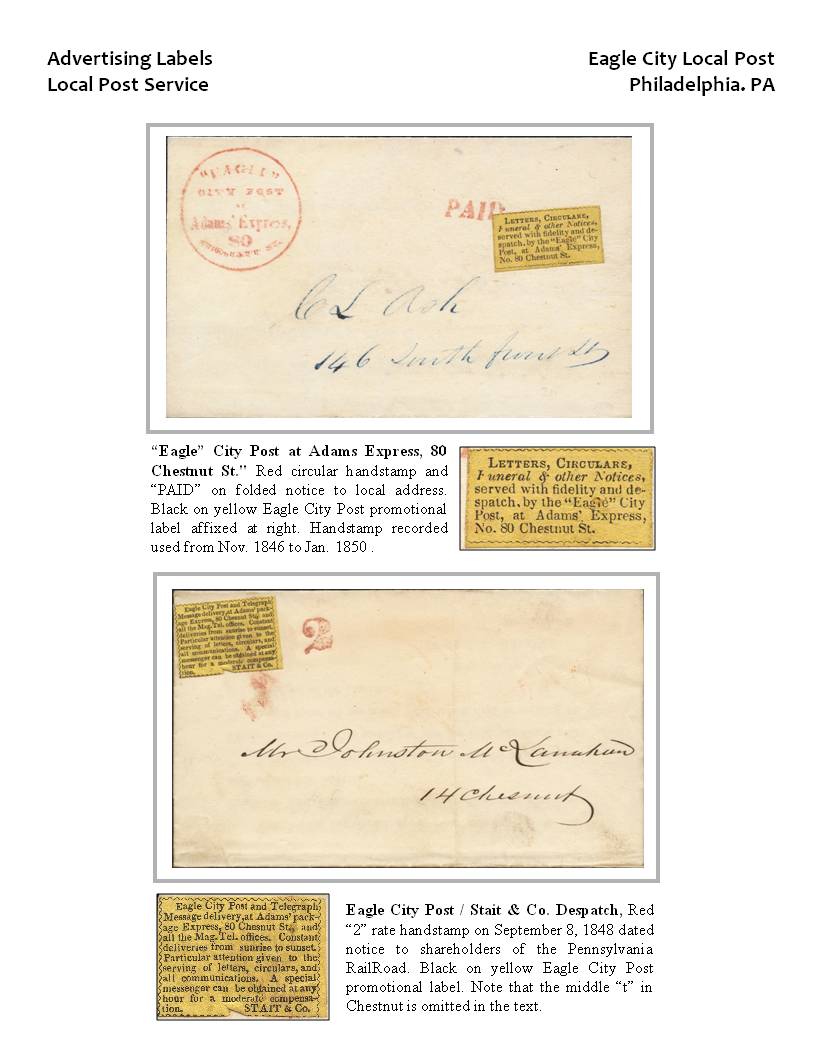 Advertising Labels
Local Post Service
Eagle City Local Post
Philadelphia. PA
"EAGLE"
CITY POST
AT
Adams' Expres,
80
CHESNUT ST.
PAID
LETTERS, CIRCULARS,
Funeral & other Notices,
served with fidelity and de-
spatch, by the "Eagle" City
Post, at Adams' Express,
No. 80 Chesnut St.
C L Ash
146 South
“Eagle” City Post at Adams Express, 80
Chestnut St.” Red circular handstamp and
“PAID” on folded notice to local address.
Black on yellow Eagle City Post promotional
label affixed at right. Handstamp recorded
used from Nov. 1846 to Jan. 1850 .
LETTERS, CIRCULARS,
Funeral & other Notices,
served with fidelity and de-
spatch, by the “Eagle” City
Post, at Adams' Express,
No. 80 Chesnut St.
Eagle City Post and Telegraph
Message delivery, at Adams' pack-
age Express, 80 Chesnut St., and
all the Mag. Tel. offices. Constant
deliveries from sunrise to sunset.
Particular attention given to the
serving of letters, circulars, and
all communications. A special
messenger can be obtained at any
hour for a moderate compensa-
tion. STAIT & Co.
2
Mr Johnston McLanahan
14 Chesnut
Eagle City Post and Telegraph
Message delivery, at Adams' pack-
age Express, 80 Chesnut St., and
all the Mag. Tel. offices. Constant
deliveries from sunrise to sunset.
Particular attention given to the
serving of letters, circulars, and
all communications. A special
messenger can be obtained at any
hour for a moderate compensa-
tion. STAIT & Co.
Eagle City Post / Stait & Co. Despatch, Red
“2” rate handstamp on September 8, 1848 dated
notice to shareholders of the Pennsylvania
RailRoad. Black on yellow Eagle City Post
promotional label. Note that the middle “t” in
Chestnut is omitted in the text.